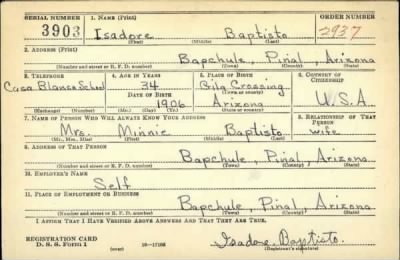 SERIAL NUMBER 1. NAME (Print) ORDER NUMBER
3903 Isadore Baptisto 2937
(First) (Middle) (Last)
2. ADDRESS (Print)
Bapchule, Pinal, Arizona
(Number and street or R. F. D. number) (Town) (County) (State)
3. TELEPHONE 4. AGE IN YEARS 5. PLACE OF BIRTH 6. COUNTRY OF CITIZENSHIP
Casa Blanca School 34 Gila Crossing
DATE OF BIRTH (Town or county)
1906 Arizona U.S.A
(Exchange) (Number) (Mo.) (Day) (Yr.) (State or country)
7. NAME OF PERSON WHO WILL ALWAYS KNOW YOUR ADDRESS 8. RELATIONSHIP OF THAT PERSON
Mrs. Minnie Baptisto wife
(Mr., Mrs., Miss) (First) (Middle) (Last)
9. ADDRESS OF THAT PERSON
Bapchule, Pinal, Arizona
(Number and street or R. F. D. number) (Town) (County) (State)
10. EMPLOYER'S NAME
Self
11. PLACE OF EMPLOYMENT OR BUSINESS
Bapchule, Pinal, Arizona
(Number and street or R. F. D. number) (Town) (County) (State)
I AFFIRM THAT I HAVE VERIFIED ABOVE ANSWERS AND THAT THEY ARE TRUE.
REGISTRATION CARD
D. S. S. Form 1 (over) Isadore Baptisto
(Registrant's signature)